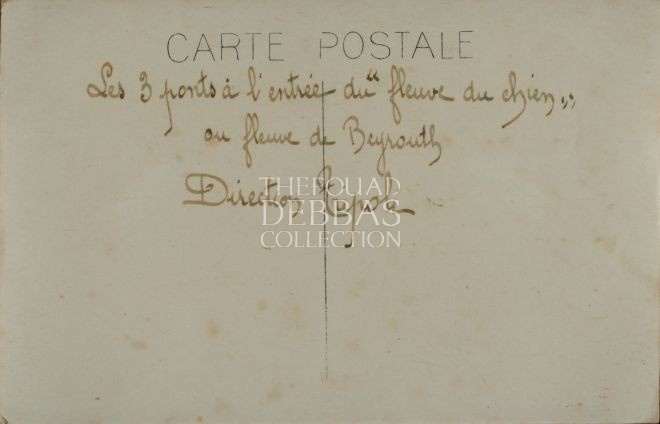 CARTE POSTALE
Les 3 ponts à l'entrée du "fleuve du chien"
ou fleuve de Beyrouth
Direction Tripoli
THE FOUAD
DEBBAS
COLLECTION